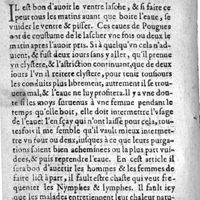 IL est bon d'auoir le ventre lasche, & si faire ce
peut tous les matins auant que boire l'eaue, se
vuider le ventre & pisser. Ces eaues de Pougues
ont de coustume de la lascher vne fois ou deux
auant les auoir pris. Si à quelqu'vn cela n'ad-
uient, & fust deux iours sans y aller, qu'il prenne
vn clystere, & l'astriction continuant, que de deux
iours l'vn il reitere clystere, pour tenir tousiours
les conduits plus libremẽt, autrement il se trou-
uera mal, & l'eaue ne luy profitera. Il y a vne dou-
te si les moys suruenus à vne femme pendant les
temps qu'elle boit, elle doit intermettre l'vsage
de l'eaue: l'en sçay qui n'ont laissé pour ce, toutes-
fois il me semble qu'il vault mieux intermet-
tre vn iour ou deux, iusques à ce que leurs purga-
tions soient bien acheminees ou la plus part vui-
dees, & puis reprendre l'eaue. En cest article il
sera bon d'auertir les hommes & les femmes de
faire lict à part, il fault estre chaste qui veut fre-
quenter les Nymphes & lymphes. Il fault icy
que les malades entretiennent leur chaleur natu-